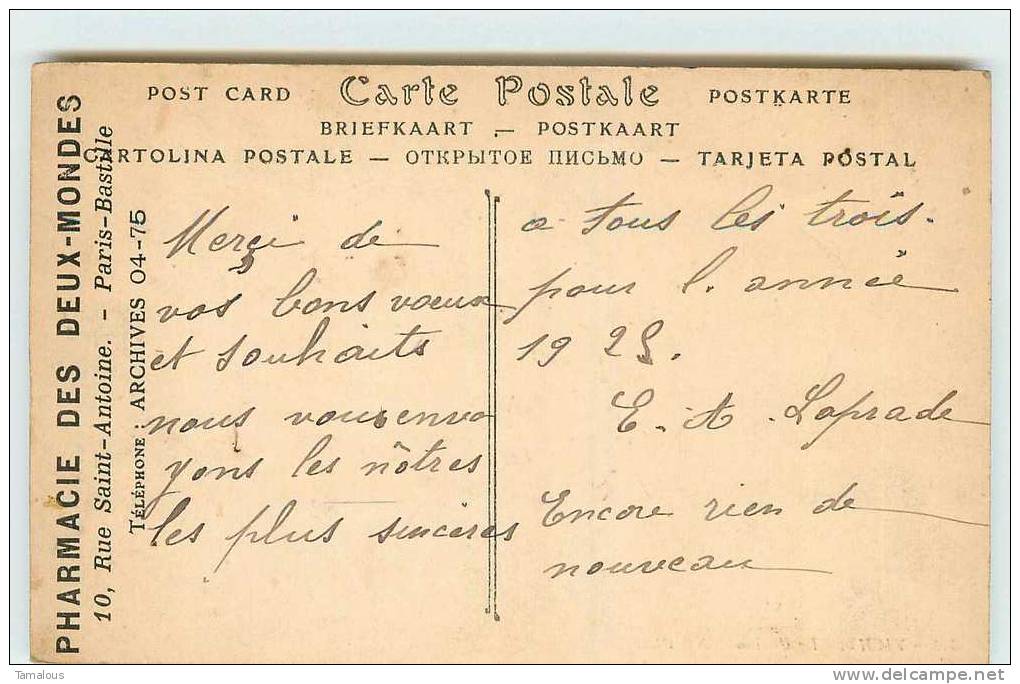 POST CARD Carte Postale POSTKARTE
BRIEFKAART — POSTKAART
CARTOLINA POSTALE — ОТКРЫТОЕ ПИСЬМО — TARJETA POSTAL
PHARMACIE DES DEUX-MONDES
10, Rue Saint-Antoine. - Paris-Bastille
TÉLÉPHONE : ARCHIVES 04-75
Merçi de
vos bons voeux
et souhaits
nous vous envo
yons les nôtres
les plus sincères
a tous les trois.
pour l'année
192
E. A. Laprade
Encore rien de
nouveau
Tamalous
www.delcampe.net